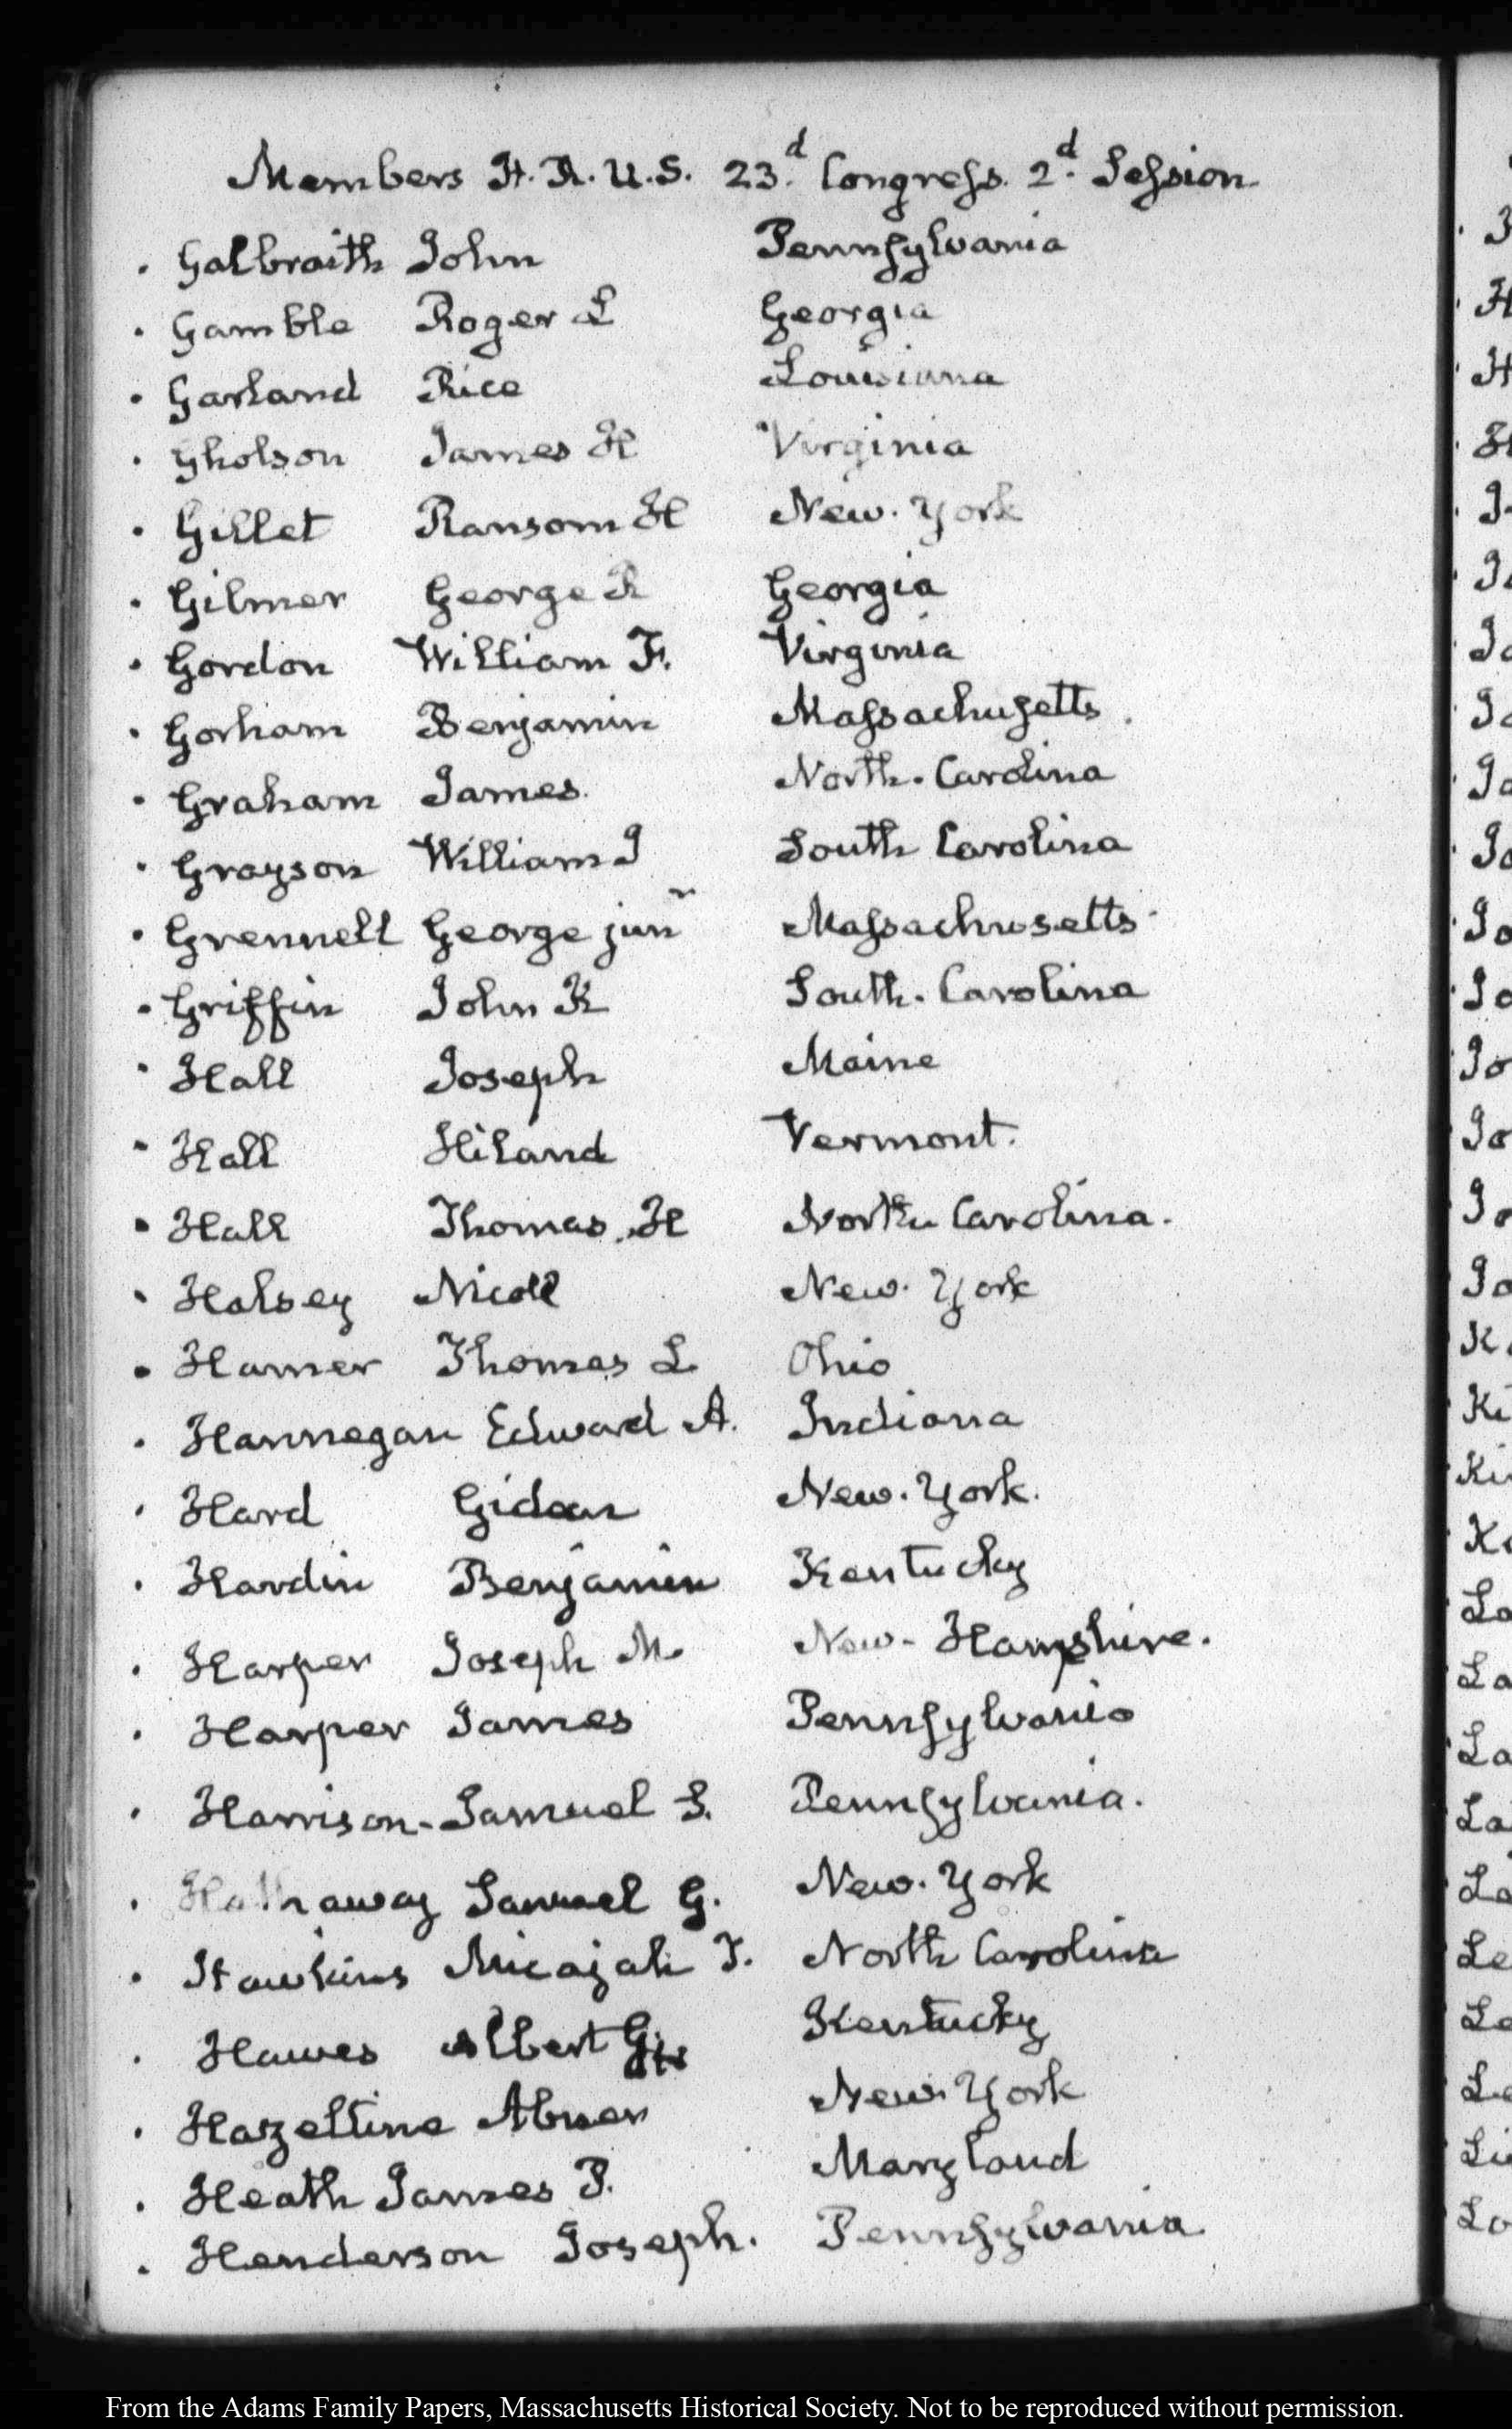 Members H.R.U.S. 23.d Congress. 2.d Session
Galbraith John Pennsylvania
Gamble Roger L Georgia
Garland Rice Louisiana
Gholson James H Virginia
Gillet Ransom H New. York
Gilmer George R Georgia
Gordon William F. Virginia
Gorham Benjamin Massachusetts.
Graham James. North. Carolina
Grayson William J South Carolina
Grennell George junr Massachusetts
Griffin John K South. Carolina
Hall Joseph Maine
Hall Hiland Vermont.
Hall Thomas. H North Carolina.
Halsey Nicoll New. York
Hamer Thomas L. Ohio
Hannegan Edward A. Indiana
Hard Gideon New. York.
Hardin Benjamin Kentucky
Harper Joseph M. New-Hampshire.
Harper James Pennsylvania
Harrison-Samuel S. Pennsylvania.
Hathaway Samuel G. New. York
Hawkins Micajah T. North Carolina
Hawes Albert G. Kentucky
Hazeltine Abner New. York
Heath James P. Maryland
Henderson Joseph. Pennsylvania.
From the Adams Family Papers, Massachusetts Historical Society. Not to be reproduced without permission.